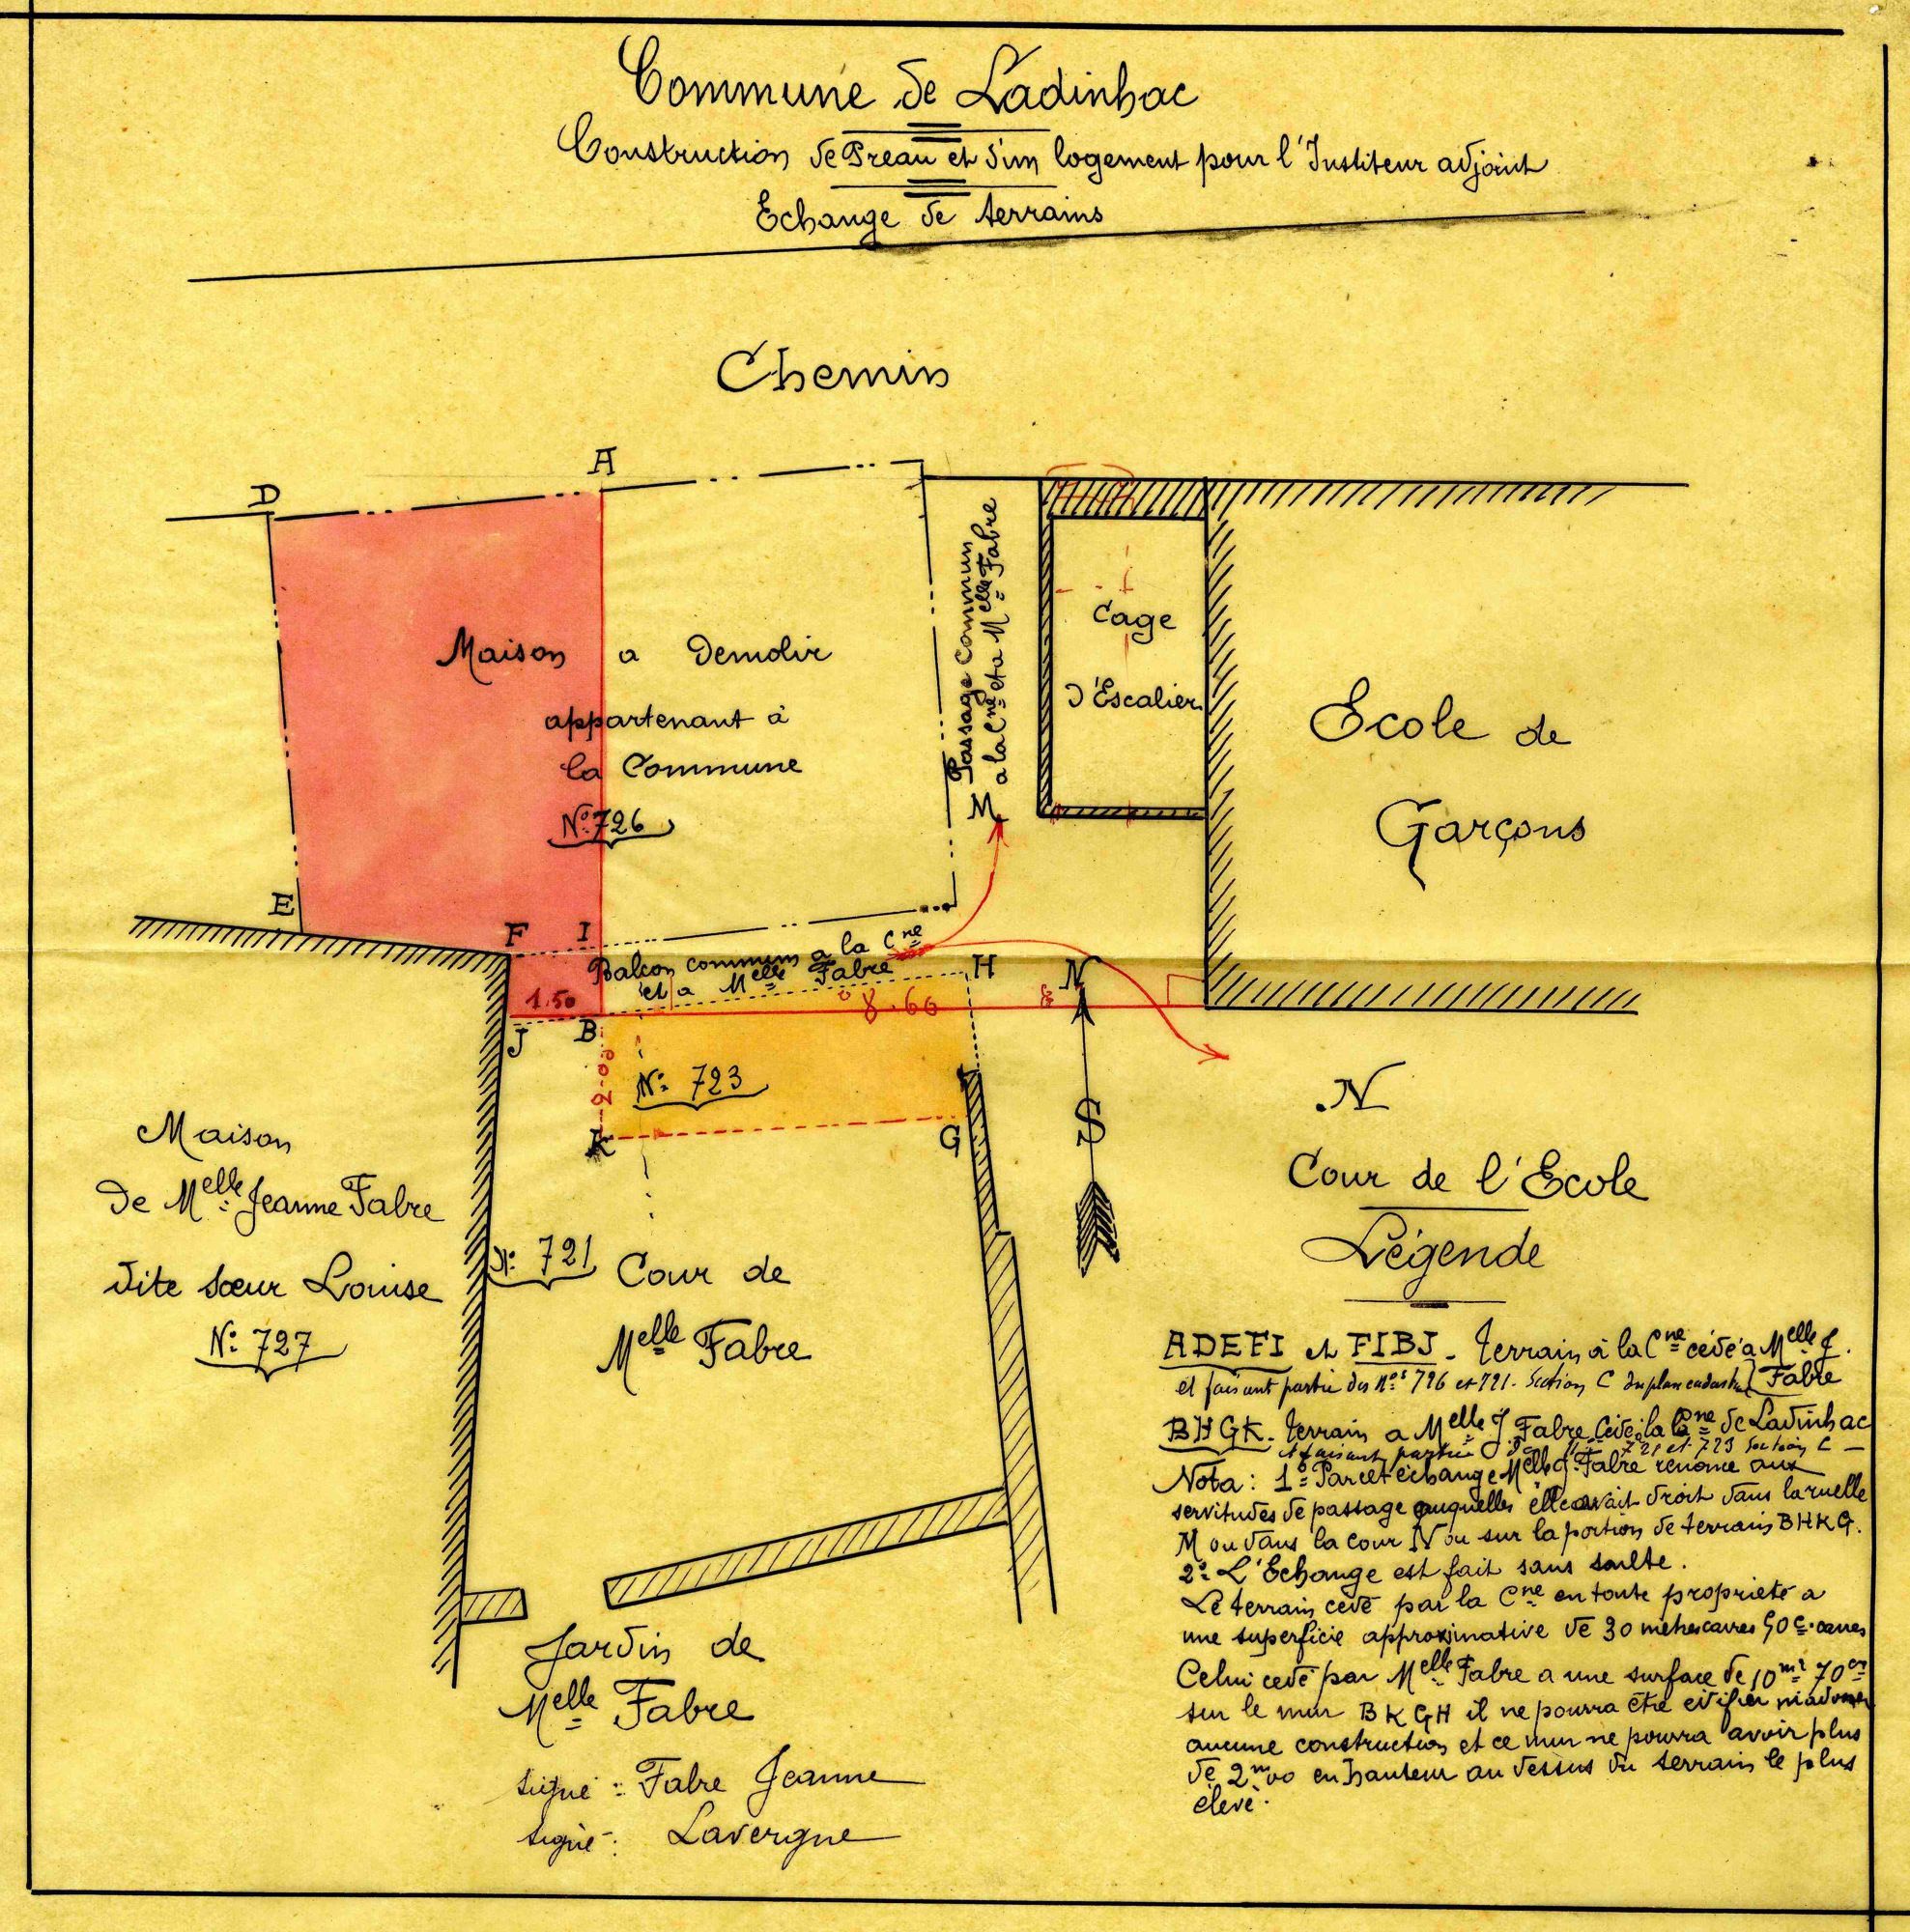 Commune de Ladinhac
Construction de Preau et d'un logement pour l'Institeur adjoint
Echange de terrains
Chemin
A
D
Maison a Demolir
appartenant à
la Commune
N° 726
Passage Commun
a la Cne et a Melle Fabre
M
Cage
d'Escalier
Ecole de
Garçons
E
F I
Balcon commun a la Cne
et a Melle Fabre
H
N
1.50
8.60
J B
2.00
N° 723
K
G
S
N
Cour de l'Ecole
Maison
de Melle Jeanne Fabre
dite sœur Louise
N° 727
N° 721
Cour de
Melle Fabre
Jardin de
Melle Fabre
signé : Fabre Jeanne
signé : Lavergne
Légende
ADEFI et FIBJ - terrain à la Cne cédé a Melle J.
et faisant partie des Nos 726 et 721. Section C du plan cadastral Fabre
BHGK. terrain a Melle J Fabre cédé à la Cne de Ladinhac
et faisant partie 721 et 723 Section C
Nota : 1° Par cet échange Melle J. Fabre renonce aux
servitudes de passage auquelles elle avait droit dans la ruelle
M ou dans la cour N ou sur la portion de terrain BHKG.
2° L'Echange est fait sans soulte.
Le terrain cédé par la Cne en toute propriété a
une superficie approximative de 30 mètres carrés 50 c. carrés
Celui cédé par Melle Fabre a une surface de 10 m2 70
sur le mur BKGH il ne pourra être édifier ni adosser
aucune construction et ce mur ne pourra avoir plus
de 2m00 en hauteur au dessus du terrain le plus
élevé.